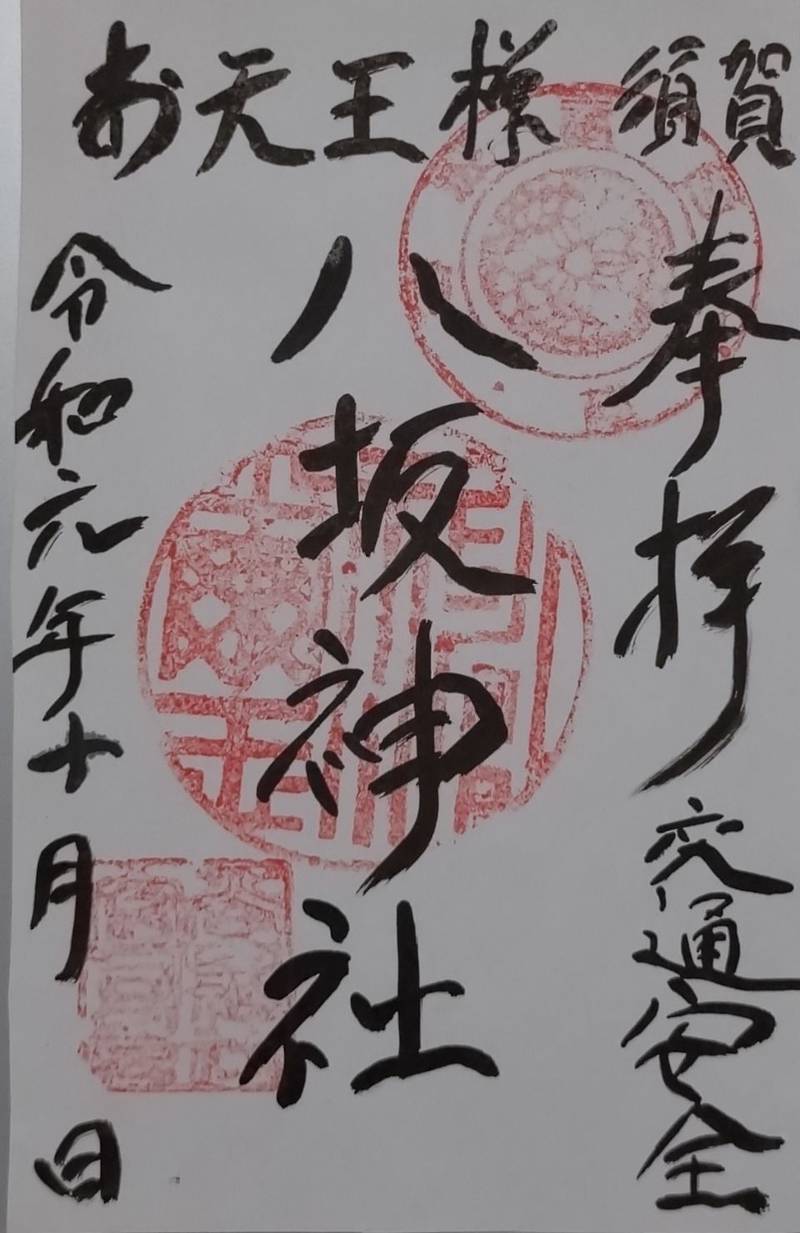 須賀
お天王様
奉拝
交通安全
八坂神社
令和元年十月 日